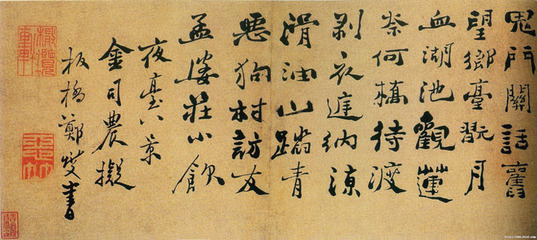 鬼門關話舊
望鄉臺翫月
血湖池觀蓮
柰何橋待渡
剝衣進納涼
滑油山踏青
惡狗村訪友
孟婆莊小飲
夜臺八景
金司農擬
板橋鄭燮書